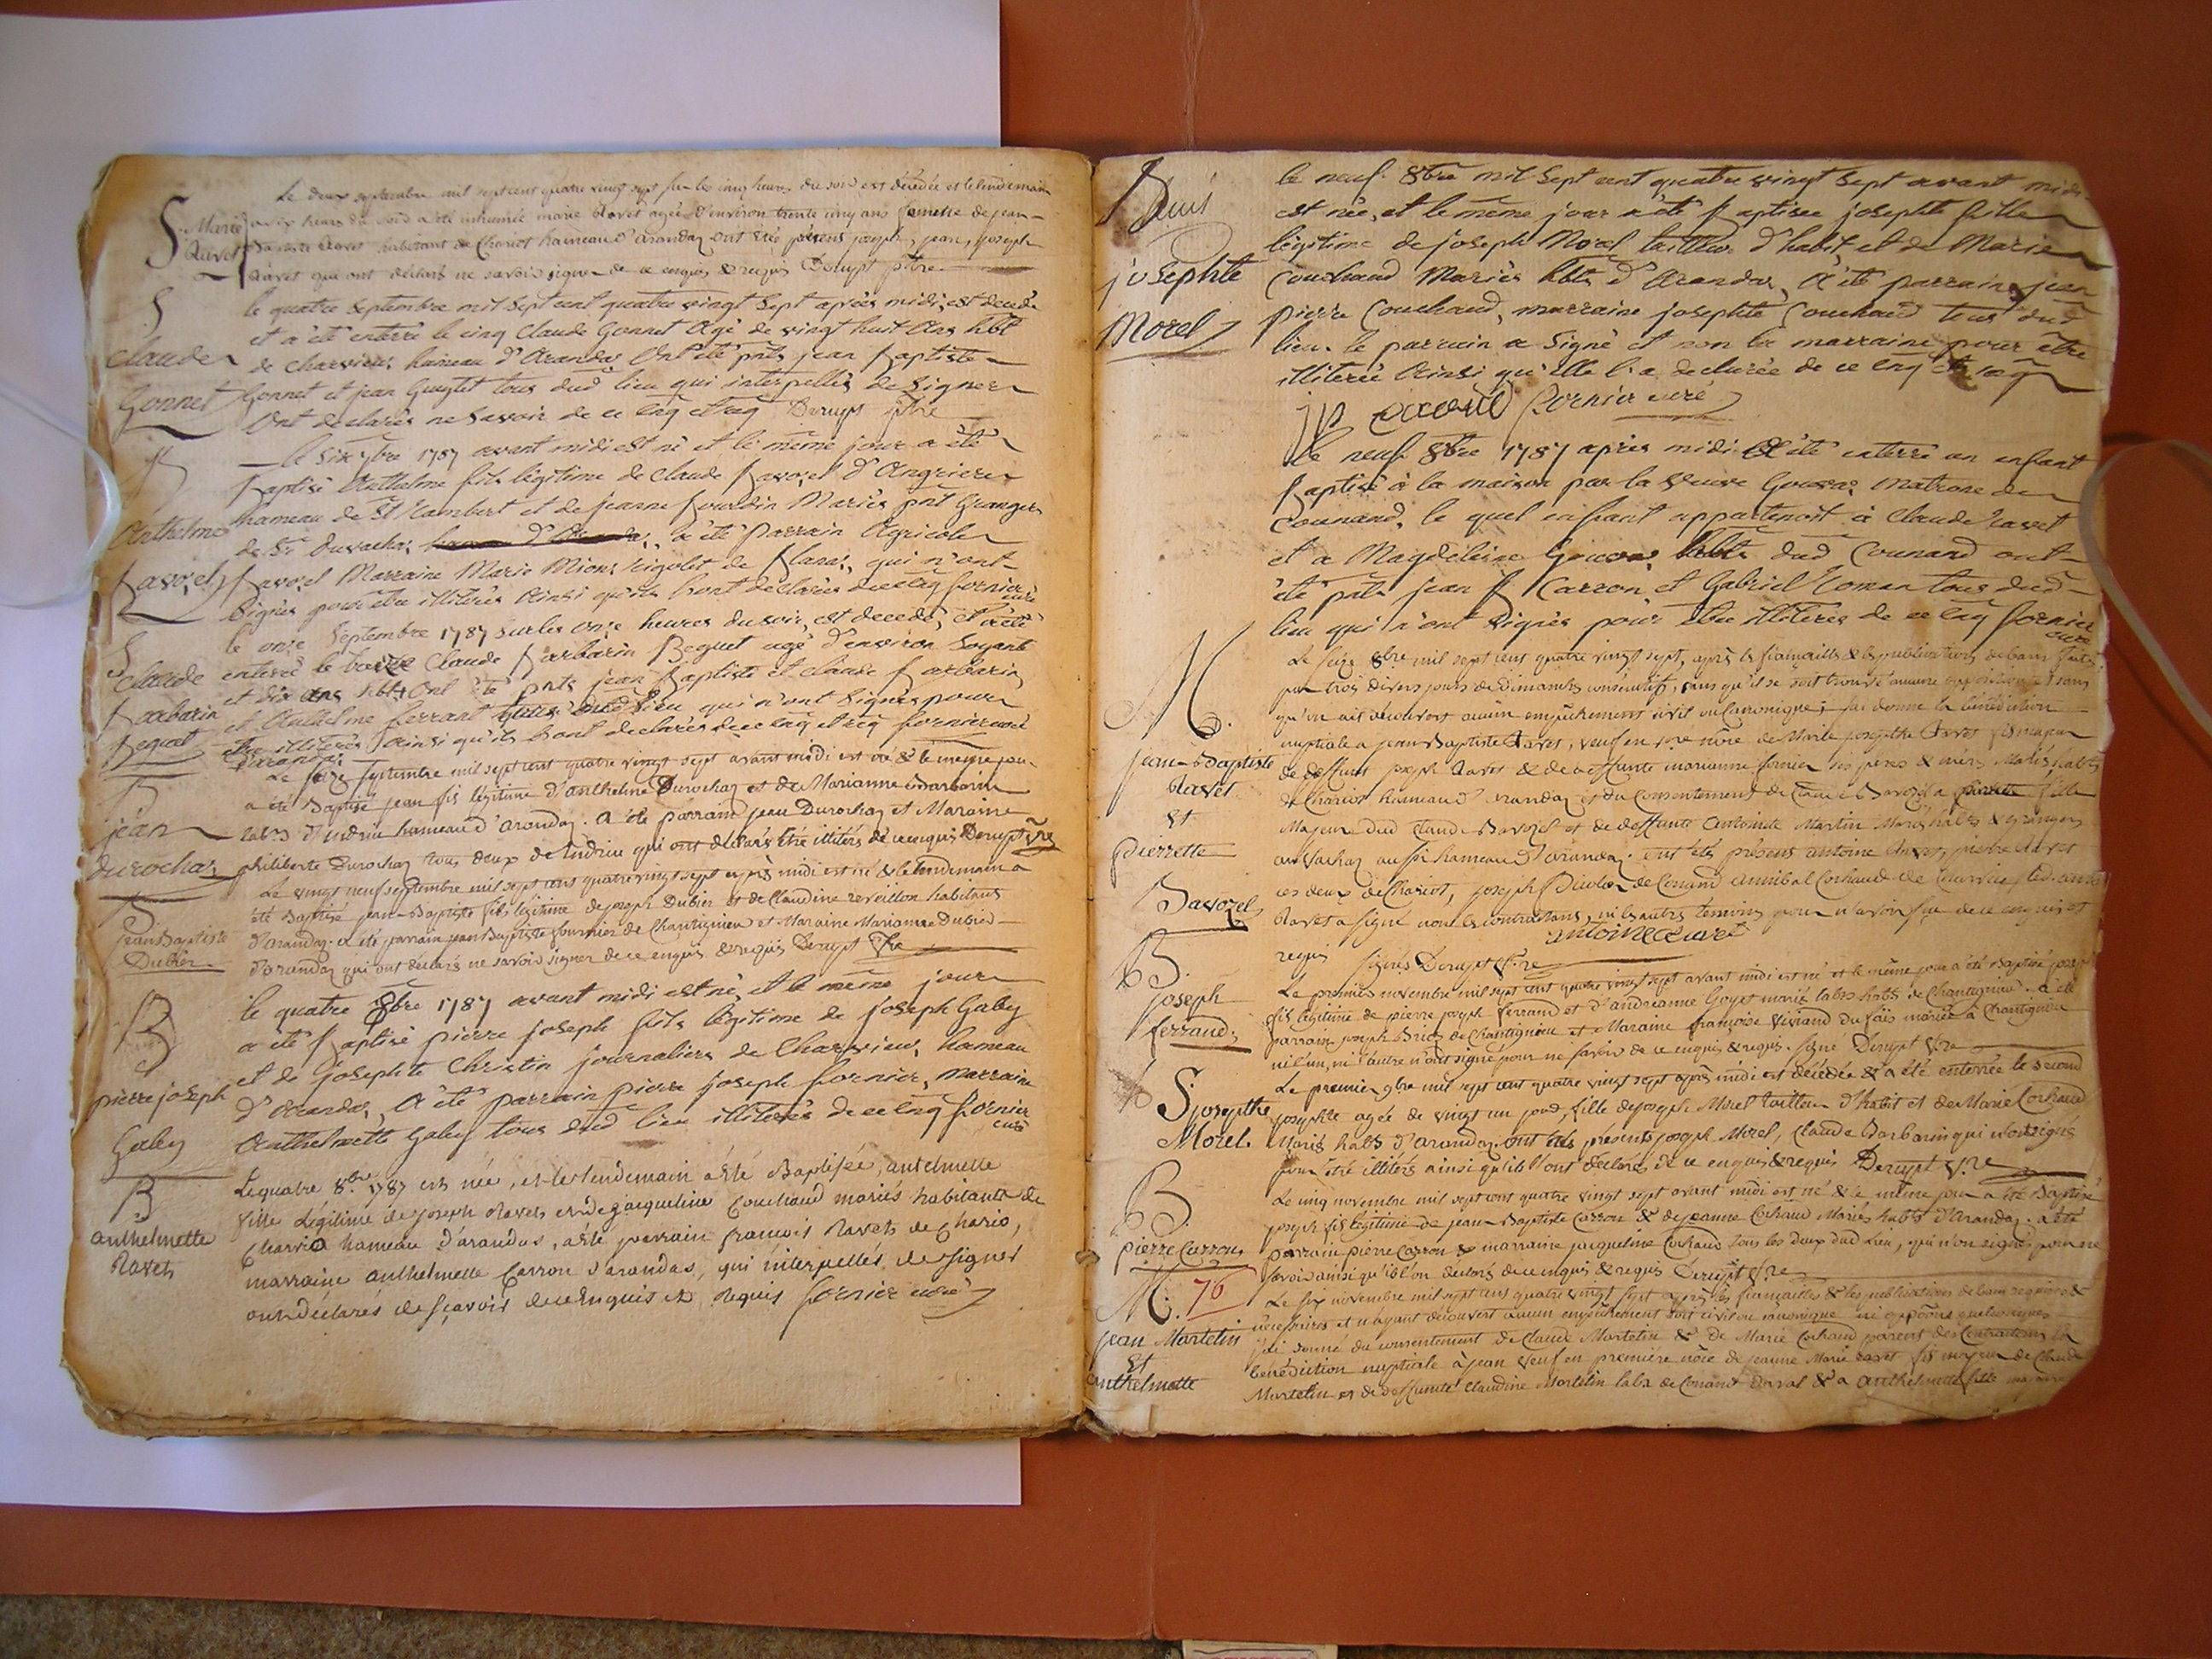 Le deux septembre mil sept cent quatre vingt sept sur les cinq heures du soir est décédée et le lendemain
S. Marie Ravet
a six heures du soir a été inhumée marie Ravet agée d'environ trente cinq ans femme de jean-
Baptiste Ravet habitant de Chariot hameau d'arandaz ont été présens joseph, jean, joseph
Ravet qui ont déclaré ne savoir signer de ce enquis & requis Derupt ptre
S claude Gonnet
le quatre septembre mil sept cent quatre vingt sept après midi, est decedé
et a été enterré le cinq Claude Gonnet agé de vingt huit ans hbt
de charvieu hameau d'Arandas Ont été pnts jean baptiste
Gonnet et jean tous dud lieu qui interpellés de signer
Ont declarés ne savoir de ce enq et req Derupt ptre
B Anthelme Bavozet
le six 7bre 1787 avant midi est né et le même jour a été
baptisé Anthelme fils légitime de claude Bavozet d'Angrieres
hameau de St Rambert et de jeanne Jourdin Mariés pnt Granger
de Sr Duvachat a été Parrain Agricole
Bavozet Marraine Marie rigolet de qui n'ont
signés pour être illiterés Ainsi qu'ils l'ont declarés de ce enq fornier curé
S Claude Barbarin Bequet
le onze Septembre 1787 sur les onze heures du soir, est decedé, et a été
enterré le treize Claude Barbarin Bequet agé d'environ soixante
et dix ans hbt Ont été pnts jean baptiste et claude Barbarin
et Anthelme ferrant tous dud lieu qui n'ont signés pour
être illiterés ainsi qu'ils l'ont declarés de ce enq et req fornier curé
B jean durochaz
Le seize septembre mil sept cent quatre vingt sept avant midi est né & le meme jour
a été Baptisé jean fils légitime d'anthelme Durochaz et de Marianne Barbarin
labrs d'indrieu hameau d'arandaz. a été parrain jean Durochaz et Maraine
philiberte Durochaz tous deux de indrieu qui ont déclarés être illitérés de ce enquis Derupt Vre
B jean Baptiste Dubier
Le vingt neuf septembre mil sept cent quatre vingt sept après midi est né & le lendemain a
été Baptisé jean-Baptiste fils légitime de joseph Dubier et de Claudine reveillon habitants
d'arandaz. a été parrain jean Baptiste fournier de Chantignieu et Maraine Marianne Dubier
d'arandaz qui ont déclaré ne savoir signer de ce enquis & requis Derupt Vre
B pierre joseph Gabey
le quatre 8bre 1787 avant midi est né, et le même jour
a été baptisé pierre joseph fils légitime de joseph Gabey
et de josephte Christin journaliers de Charvieu, hameau
d'Arandas, A été parrain pierre joseph fornier, marraine
Anthelmette Gabey tous dud lieu illiterés de ce enq fornier curé
B anthelmette Ravet
Le quatre 8bre 1787 est née, et le lendemain a été Baptisée, antelmette
fille Légitime de joseph Ravet et de jacqueline Couchaud mariés habitants de
Charrio hameau d'arandas, a été parrain françois Ravet de Chario,
marraine anthelmette Carron d'arandas, qui interpellés de signer
ont déclarés de sçavoir de ce enquis et requis fornier curé
B josephte Morel
le neuf 8bre mil sept cent quatre vingt sept avant midi
est née, et le même jour a été baptisée josephte fille
légitime de joseph Morel tailleur d'habit, et de Marie
Couchaud Mariés hbts d'Arandas, A été parrain jean
pierre Couchaud, marraine josephte Couchaud tous dud
lieu. le parrain a signé et non la marraine pour être
illiterée Ainsi qu'elle l'a declarée de ce enq et req
fornier curé
le neuf 8bre 1787 après midi a été enterré un enfant
baptisé à la maison par la veuve Matrone de
Counand, le quel enfant appartenoit à Claude ravet
et a Magdeleine hbts dud Counand ont
été pnts jean B Carron et Gabriel roman tous dud
lieu qui n'ont signés pour être illiteres de ce enq fornier curé
M jean-Baptiste Ravet Et pierrette Bavozet
Le seize 8bre mil sept cent quatre vingt sept, après les fiançailles & les publications de bans faites
par trois divers jours de Dimanches consécutifs, sans qu'il se soit trouvé aucune opposition, & sans
qu'on ait découvert aucun empêchement civil ou Canonique; j'ai donné la bénédiction
nuptiale a jean Baptiste Ravet, veuf en 1ere nôce de Marie josephte Ravet fils majeur
de deffunt joseph Ravet & de deffunte marianne fornier ses pères & mères Mariés, habts
de Chariot hameau d'arandaz et du Consentement de Claude Bavozet a pierrette fille
Majeure dud Claude Bavozet et de deffunte Antoinette Martin Mariés habts & grangers
au Vachaz aussi hameau d'arandaz. ont été présens antoine Ravet, pierre Ravet
ces deux de Chariot, joseph de Conand annibal Cochaud de Charvieu, led. antoine
Ravet a signé non les contractans, ni les autres témoins pour n'avoir sçu de ce enquis et
requis signés Derupt Vre antoine ravet
B. joseph ferrand
Le premier novembre mil sept cent quatre vingt sept avant midi est né et le même jour a été Baptisé joseph
fils légitime de pierre joseph ferrand et d'andréanne Goyet mariés labrs habts de Chantignieu. a été
parrain joseph Brier de Chantignieu et Maraine françoise Viviand du mariée a Chantignieu
ni l'un, ni l'autre n'ont signé pour ne savoir de ce enquis & requis. signé Derupt Vre
S josephte Morel.
Le premier 9bre mil sept cent quatre vingt sept après midi est décédée & a été enterrée le second
josephte agée de vingt un jour, fille de joseph Morel tailleur d'habit et de Marie Cochaud
Mariés habts d'arandaz. ont été présents joseph Morel, Claude Barbarin qui n'ont signé
pour être illitérés ainsi qu'ils l'ont déclaré de ce enquis & requis Derupt Vre
B. pierre Carron
Le cinq novembre mil sept cent quatre vingt sept avant midi est né & le même jour a été Baptisé
joseph fils légitime de jean-Baptiste Carron & de jeanne Cochaud Mariés habts d'arandaz. a été
parrain pierre Carron & marraine jacqueline Cochaud tous les deux dud Lieu, qui n'on signés pour ne
savoir ainsi qu'ils l'on déclaré de ce enquis & requis Derupt Vre
M. 76 jean Martelin Et anthelmette
Le six novembre mil sept cent quatre vingt sept après les fiançailles & les publications de bans requises &
nécessaires et n'ayant découvert aucun empêchement soit civil ou canonique ni oppôons quelconques
j'ai donné du consentement de Claude Martelin & de Marie Cochaud parens des Contractans la
bénédiction nuptiale à jean veuf en première nôce de jeanne Marie ravet fils majeur de Claude
Martelin et de deffunte Claudine Martelin labr de Conand & a anthelmette fille majeure